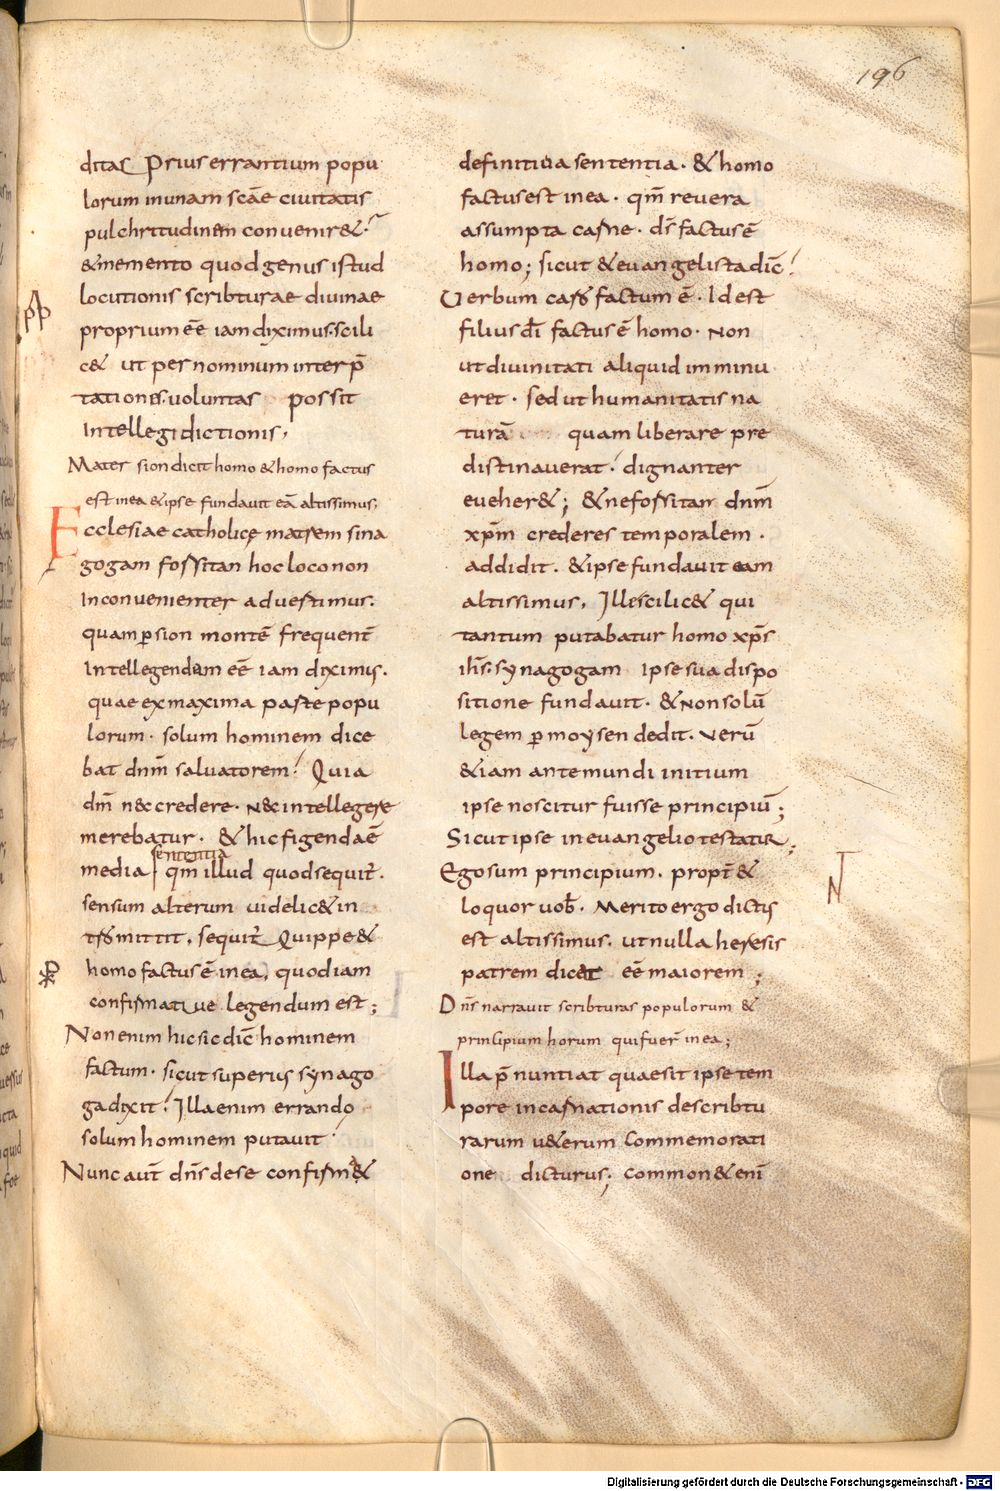 196
ditas Prius errantium popu
lorum inunam scāe ciuitatis
pulchritudinem conuenir&.
&memento quod genus istud
locutionis scribturae diuinae
proprium eē iam diximus. scili
c& ut per nominum interp̄
tationes. uoluntas possit
Intellegi dictionis,
Mater sion dicit homo & homo factus
est inea &ipse fundauit eā altissimus,
Ecclesiae catholicę matrem sina
gogam forsitan hoc loco non
Inconuenienter aduertimus.
quam ꝑ sion montē frequent̄
Intellegendam eē iam diximus.
quae ex maxima parte popu
lorum. solum hominem dice
bat dn̄m saluatorem. Quia
dm̄ n&credere. n&intellegere
merebatur. & hic figenda ē
sententia
media qm̄ illud quod sequit̄.
sensum alterum uidelic& in
trōmittit. sequit̄ Quippe &
homo factus ē inea, quod iam
confirmatiue legendum est;
Non enim hic sic dic̄ hominem
factum. sicut superius synago
ga dixit. Illa enim errando
solum hominem putauit
Nunc aut̄ dn̄s dese confirm&
definitiua sententia. & homo
factus est inea. qm̄ reuera
assumpta carne. ds̄ factus ē
homo; sicut &euangelista dic̄.
Uerbum caro factum ē. Id est
filius dī factus ē homo. Non
ut diuinitati aliquid imminu
eret. sed ut humanitatis na
turā quam liberare pre
distinauerat. dignanter
eueher&; &ne forsitan dn̄m
xp̄m crederes temporalem.
addidit. &ipse fundauit eam
altissimus, Ille scilic& qui
tantum putabatur homo xp̄s
ih̄s. synagogam ipse sua dispo
sitione fundauit. &Non solū
legem ꝑ moysen dedit. Verū
&iam ante mundi initium
ipse noscitur fuisse principiū;
Sicut ipse in euangelio testatur;
Ego sum principium. propt̄ &
loquor uob̄. Merito ergo dictis
est altissimus. ut nulla heresis
patrem dicat eē maiorem;
Dn̄s narrauit scribturas populorum &
principium horum qui fuer̄ inea;
Illa p̄nuntiat quae sit ipse tem
pore incarnationis describtu
rarum u&erum commemorati
one dicturus; Common& eni